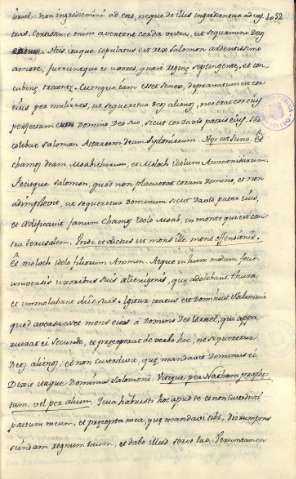 israel. non ingrediemini ad eas, neque de illis ingredientur ad ves 4052
tras. certissime enim avertent corda vestra, ut sequamini deos
earum. His itaque copulatus est rex Salomon ardentissimo
amore, fueruntque ei uxores, quasi reginæ septingentæ, et con
cubinæ trecentæ. Cumque iam esset senex, depravatum est cor
eius per mulieres, ut sequeretur deos alienos, nec erat cor eius
perfectum cum Domino Deo suo sicut cor David patris eius. sed
colebat Salomon Astartem deam Sydoniorum. Et
Chamos deum Moabitarum, et Moloch idolum Ammonitarum.
Fecitque Salomon, quod non placuerat coram Domino, et non
adimplevit, ut sequeretur dominum sicut David pater eius,
et ædificavit fanum Chamos idolo Moab, in monte qui est con
tra Ierusalem. mons offensionis.
Et Moloch idolo filiorum Ammon. Atque in hunc modum fecit
universis uxoribus suis alienigenis, quæ adolebant thura
et immolabant diis suis. Igitur iratus est Dominus Salomoni
quod aversa esset mens eius à domino deo Israel, qui appa
ruerat ei secundo, et præceperat de verbo hoc, ne sequeretur
Deos alienos, et non custodivit, quæ mandavit dominus ei.
Dixit itaque dominus Salomoni. per prophe
tam, vel per alium. Quia habuisti hoc apud te et non custodisti
pactum meum, et præcepta mea, quæ mandavi tibi, disrumpens
scindam regnum tuum, et dabo illud servo tuo. Verumtamen